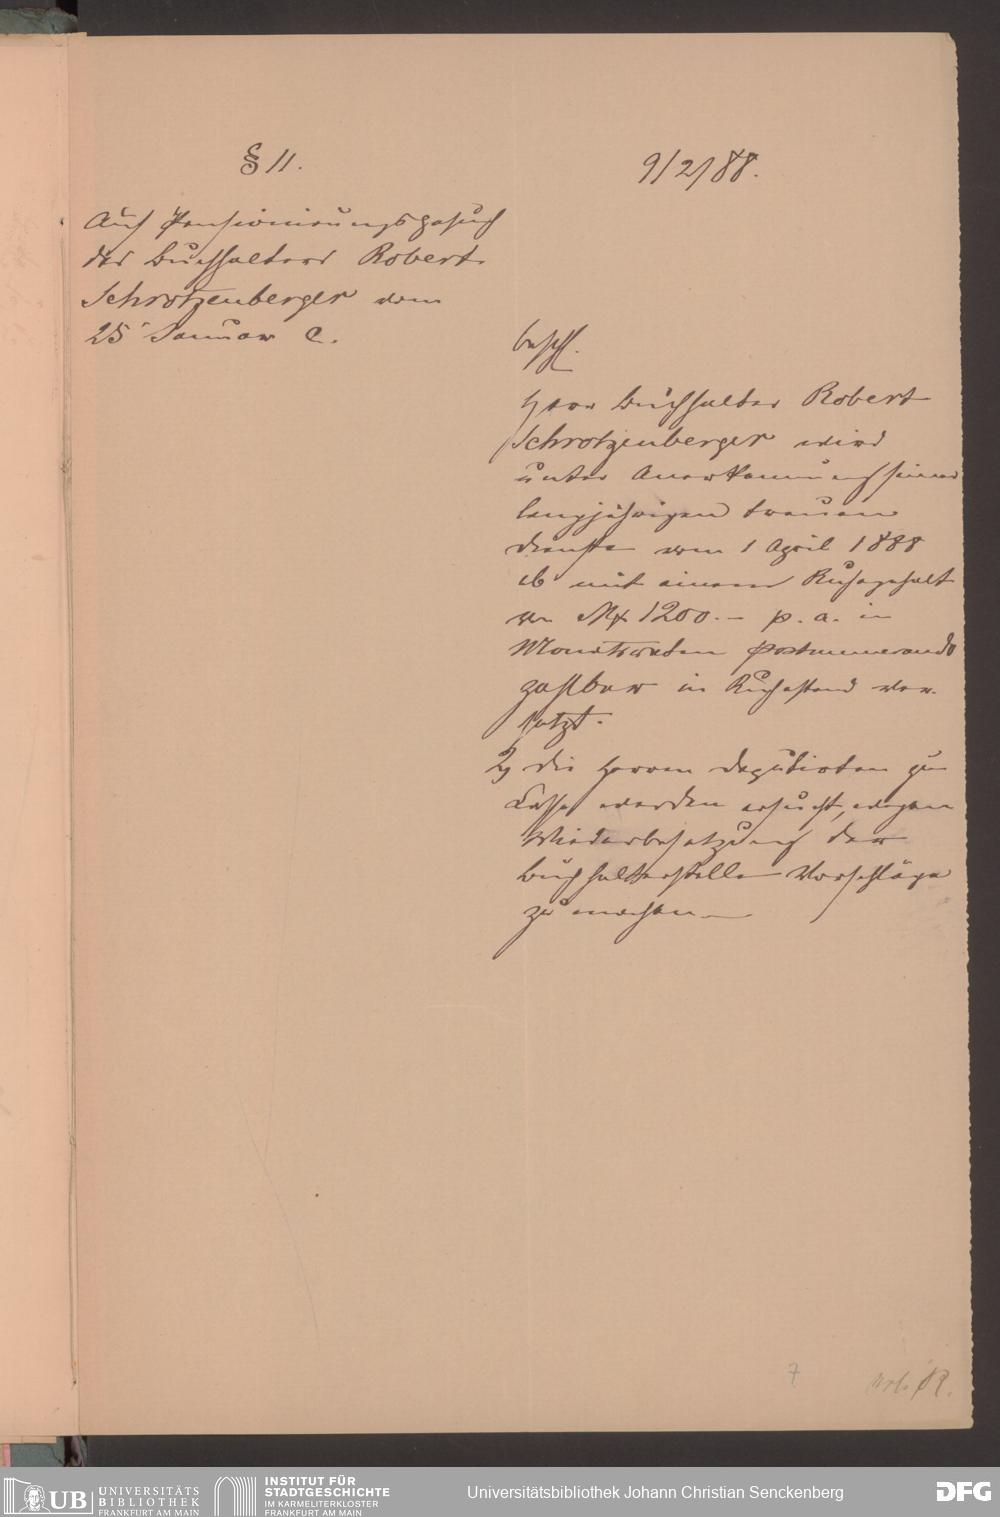 § 11.
9/2/88.
Auf Pensionierungsgesuch
des Buchhalters Robert
Schrotzenberger vom
25 Januar c.
beschl.
Herr Buchhalter Robert
Schrotzenberger wird
unter Anerkennung seiner
langjährigen treuen
Dienste vom 1 April 1888
ab mit einem Ruhegehalt
von Mk 1200.- p. a. in
Monatsraten postnumerando
zahlbar in Ruhestand ver-
setzt.
2) die Herren Deputirten zur
Casse werden ersucht, wegen
Wiederbesetzung der
Buchhalterstelle Vorschläge
zu machen
7
UB UNIVERSITÄTS
BIBLIOTHEK
FRANKFURT AM MAIN
INSTITUT FÜR
STADTGESCHICHTE
IM KARMELITERKLOSTER
FRANKFURT AM MAIN
Universitätsbibliothek Johann Christian Senckenberg
DFG